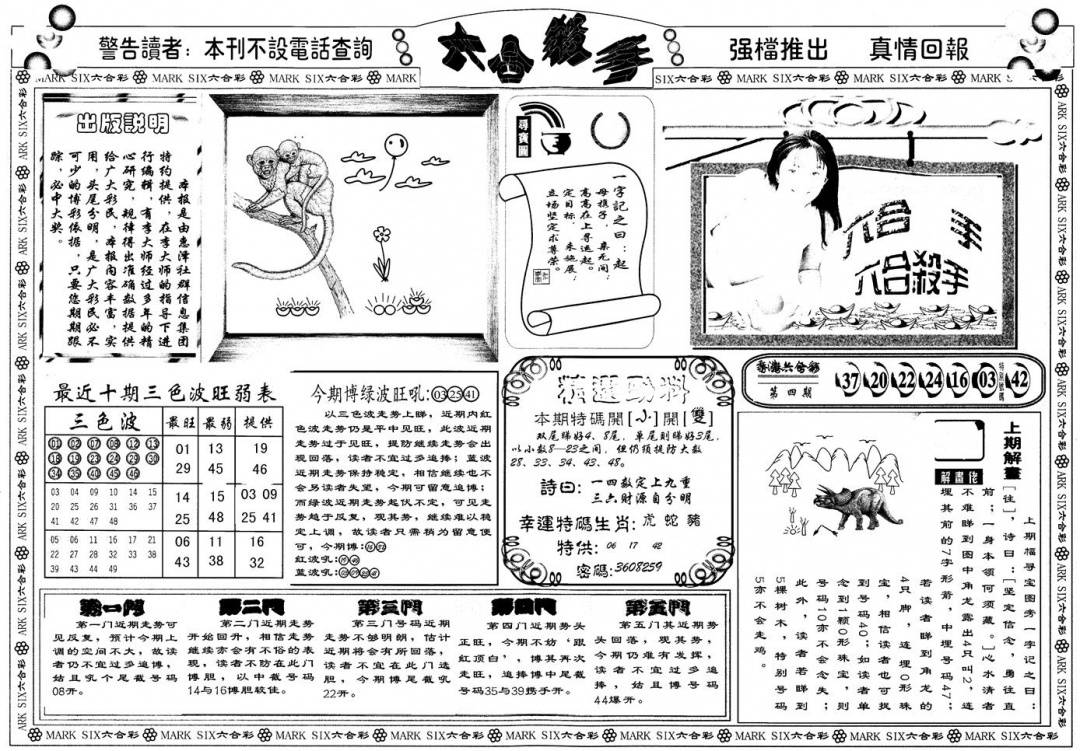 警告讀者：本刊不設電話查詢
六合殺手
强檔推出　真情回報
MARK SIX六合彩 MARK SIX六合彩 MARK SIX六合彩 MARK
SIX六合彩 MARK SIX六合彩 MARK SIX六合彩 MARK
出版説明
本报是由惠泽社群信息集团
特约提供，在李大师的指导下进
行编辑，有李大师经过多年的精
心研究，规律得出准确数据提供
给广大彩民，本报内容丰富，实
用，头尾分明，是广大彩民必不
可少的博彩依据，只要您期期跟
踪，必中大奖。
尋寶圖
一字記之曰：起
母携子，乘无间；
高高在上寻运起。
定目标，来施展；
立场坚定求尊荣。
六合　手
六合殺手
香港六合彩
第四期
37 20 22 24 16 03
特别號碼
42
最近十期三色波旺弱表
三色波 最旺 最弱 提供
01 02 07 08 12 13
18 19 23 24 29 30
34 35 40 45 46
01 13 19
29 45 46
03 04 09 10 14 15
20 25 26 31 36 37
41 42 47 48
14 15 03 09
25 48 25 41
05 06 11 16 17 21
22 27 28 32 33 38
39 43 44 49
06 11 16
43 38 32
今期博绿波旺吼：03 25 41
以三色波走势上睇，近期内红
色波走势仍是平中见旺，此波近期
走势过于见旺，提防继续走势会出
现回落，读者不宜过多追捧；蓝波
近期走势保持稳定，相信继续也不
会另读者失望，今期可留意追博；
而绿波近期走势起伏不定，可见走
势趋于反复，观其势，继续难以稳
定上调，故读者只需稍为留意便
可，今期博：
红波吼：
蓝波吼：
精選動料
本期特碼開[小]開[雙]
双尾睇好4、8尾，單尾則睇好3尾，
以小数8—23之间，但仍须提防大数
28、33、34、43、48。
詩曰：一四数定上九重
三六财源自分明
幸運特碼生肖：虎 蛇 豬
特供：06 17 42
密碼：3608259
上期解畫
解畫佬
上期幅寻宝图旁一字记之曰：
[往]，诗曰：[坚定信念，勇往直
前；一身本领何须藏。]心水清者
不难睇到图中角龙露出4只叫2，连
埋其前的7字形箭，中埋号码47；
若读者睇到角龙的
4只脚，连埋0形珠
宝，相信读者也可找
到号码40；如读者单
念到1颗0形珠宝，则
号码10亦不会念失；
此外，读者若睇到
5棵树木，特别号码
5亦不会走鸡。
第一門
第一门近期走势可
见反复，预计今期上
调的空间不大，故读
者仍不宜过多追博，
姑且吼个尾截号码
08开。
第二門
第二门近期走势
开始回升，相信走势
继续亦会有不俗的表
现，读者不防在此门
博胆，以中截号码
14与16博胆较佳。
第三門
第三门号码近期
走势不够明朗，估计
近期将会有所回落，
读者不宜在此门选
胆，今期博尾截吼
22开。
第四門
第四门近期势头
正旺，今期不妨‘跟
红顶白’，博其再次
走旺，追捧博中尾截
号码35与39携手开。
第五門
第五门其近期势
头回落，观其势，
今期仍难有发挥，
读者不宜过多追
捧，姑且博号码
44爆开。
MARK SIX六合彩 MARK SIX六合彩 MARK SIX六合彩 MARK SIX六合彩 MARK SIX六合彩 MARK SIX六合彩 MARK SIX六合彩 MARK SIX六合彩 MARK SIX六合彩